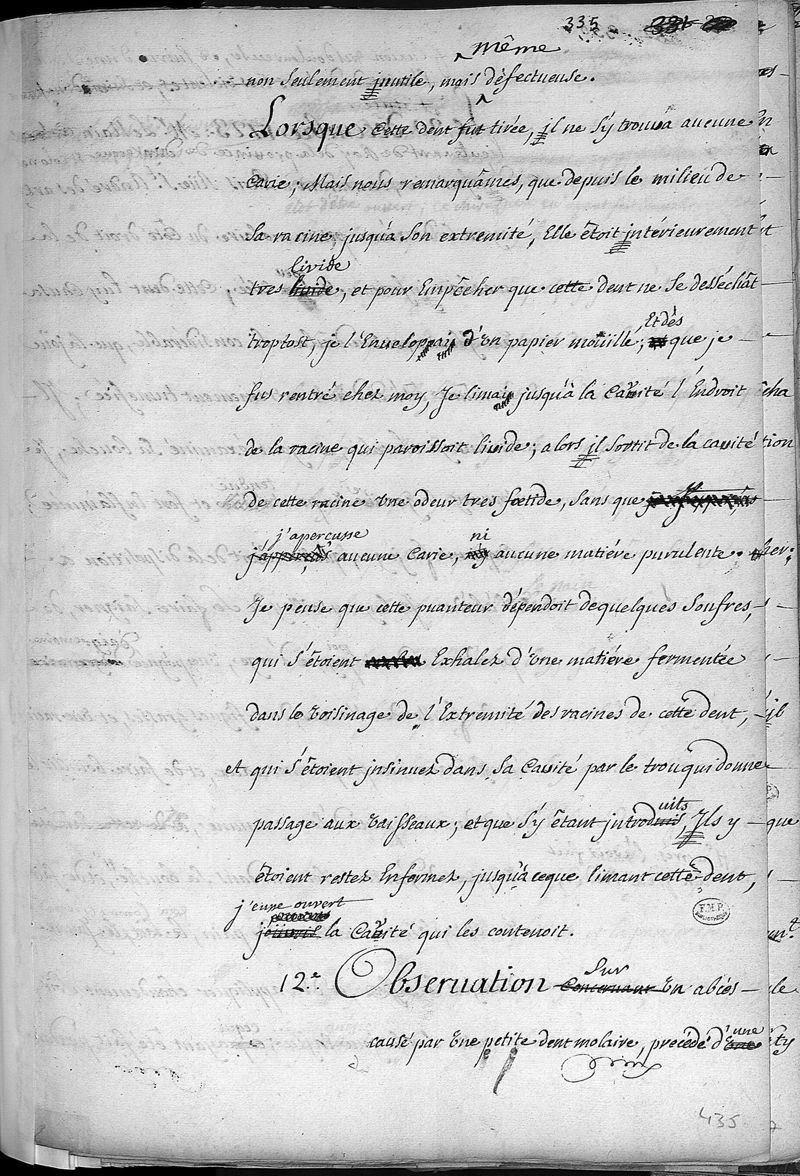 335
même
non seulement inutile, mais défectueuse.
Lorsque cette dent fut tirée, il ne s'y trouva aucune
carie; Mais nous remarquâmes, que depuis le milieu de
sa racine, jusqu'à son extremité, Elle êtoit intérieurement
livide
tres livide, et pour Empêcher que cette dent ne se desséchât
Et dès
troptost, je l'Enveloppai d'un papier moüillé; que je
fus rentré chez moy, Je limai jusqu'à la Cavité l'Endroit
de la racine qui paroissoit livide; alors il sortit de la cavité
de cette racine une odeur tres fœtide, sans que
j'aperçusse ni
aucune Carie, ny aucune matiére purulente.
Je pense que cette puanteur dépendoit de quelques Soufres,
qui s'étoient Exhalez d'une matiére fermentée
dans le voisinage de l'Extremité des racines de cette dent,
et qui s'êtoient insinuez dans sa Cavité par le trou qui donne
uits
passage aux vaisseaux; et que s'y êtant introduits, Ils y
êtoient restez Enfermez, jusqu'à ceque limant cette dent,
j'eune ouvert
j'ouvris la Cavité qui les contenoit.
F.M.P.
Sur
12.e Observation Concernant un abcés
une
causé par une petite dent molaire, precédé d'une
435